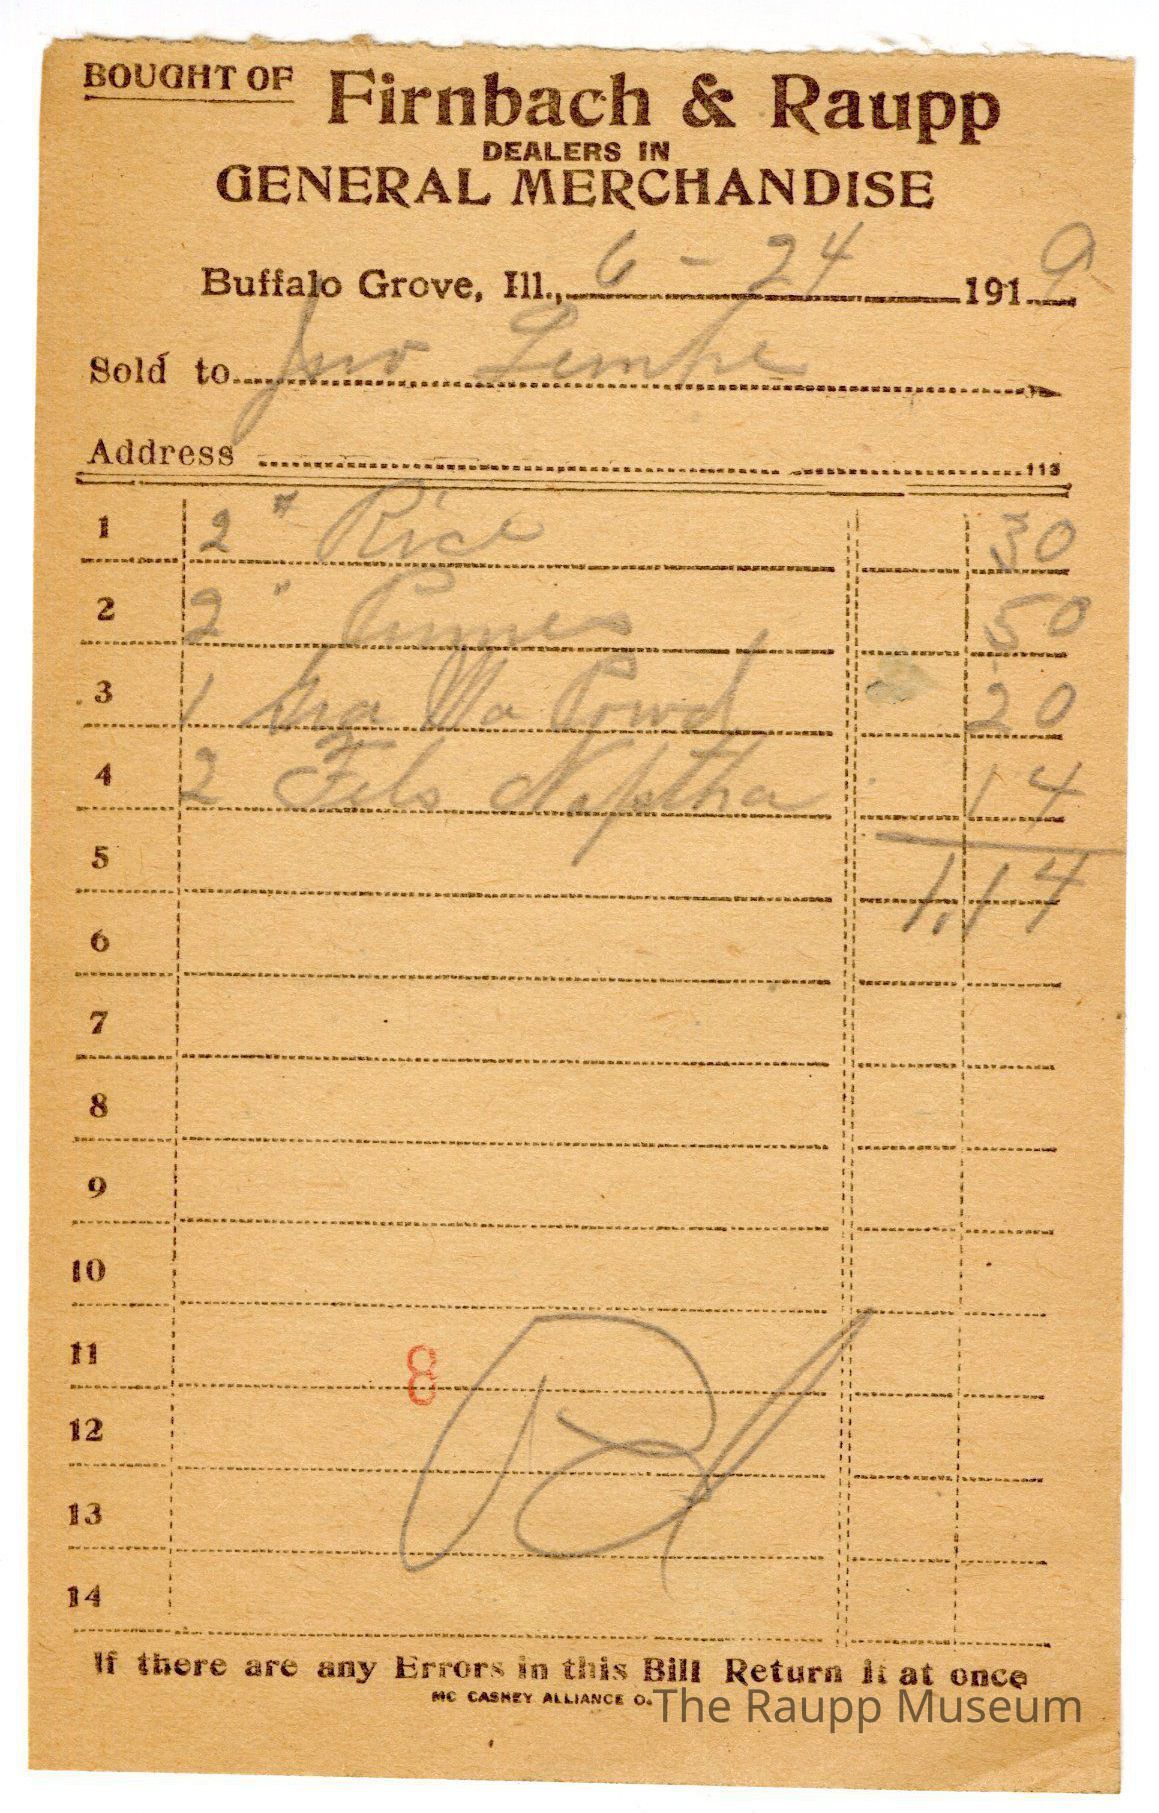 BOUGHT OF Firnbach & Raupp
DEALERS IN
GENERAL MERCHANDISE
Buffalo Grove, Ill., 6 - 24 1919
Sold to Jno Lempke
Address 113
1 2 " Rice 30
2 2 " Prunes 50
3 1 Wa Powd 20
4 2 Fels Naptha 14
5 1.14
6
7
8
9
10
11 8
12
13
14
If there are any Errors in this Bill Return it at once
MC CASKEY ALLIANCE O.
The Raupp Museum